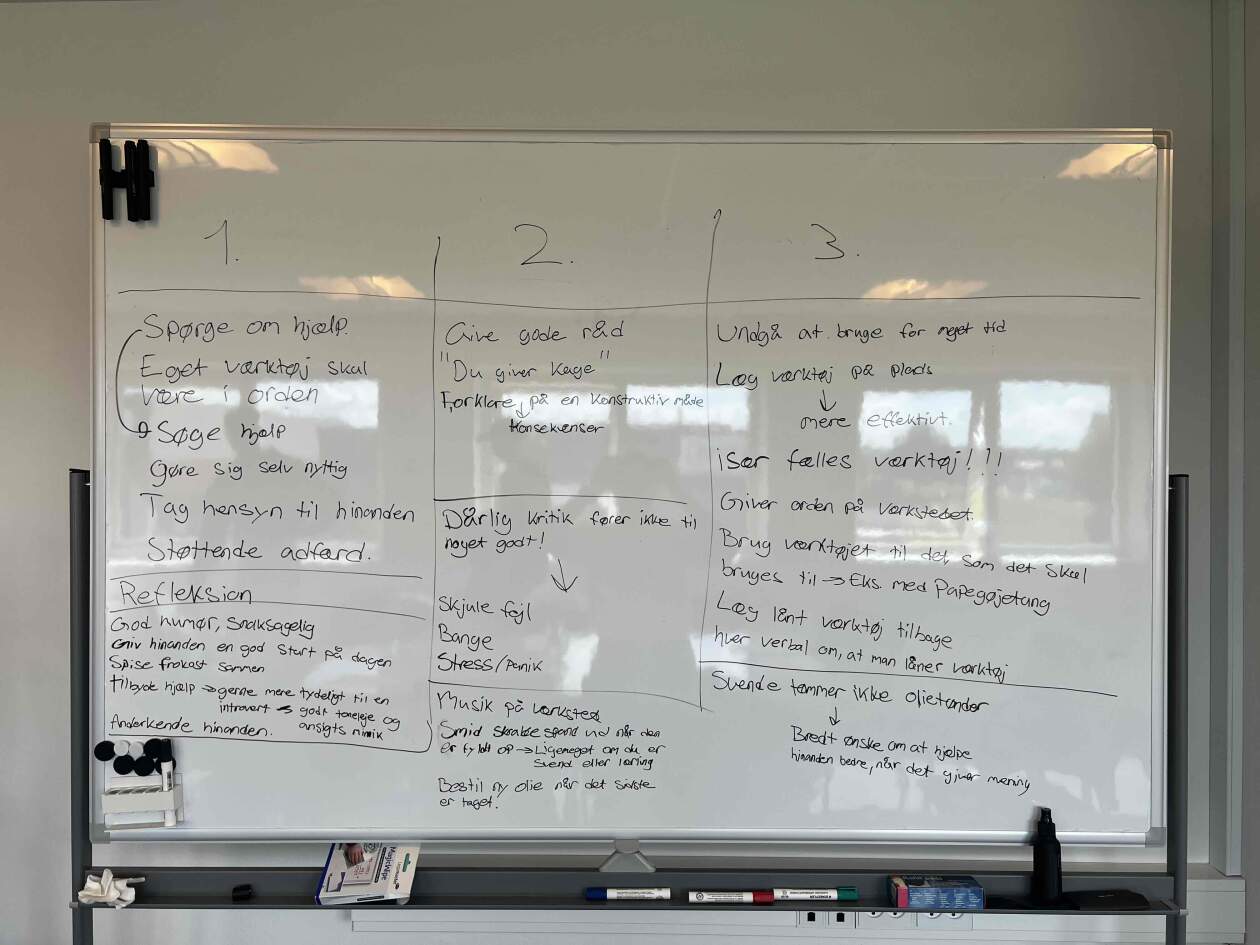 1.
Spørge om hjælp.
Eget værktøj skal
være i orden
Søge hjælp
Gøre sig selv nyttig
Tag hensyn til hinanden
Støttende adfærd.
Refleksion
God humør, snaksagelig
Giv hinanden en god start på dagen
Spise frokost sammen
Tilbyde hjælp → gerne mere tydeligt til en
introvert → godt toneleje og
ansigts mimik
Anderkende hinanden.
2.
Give gode råd
"Du giver kage"
Forklare på en konstruktiv måde
Konsekvenser
Dårlig kritik fører ikke til
noget godt!
Skjule fejl
Bange
Stress/panik
Musik på værksted
Smid skralde spand ud når den
er fyldt op → Ligemeget om du er
Svend eller lærling
Bestil ny olie når det sidste
er taget.
3.
Undgå at bruge for meget tid
Læg værktøj på plads
mere effektivt.
især fælles værktøj!!!
Giver orden på værkstedet.
Brug værktøjet til det som det skal
bruges til → Eks. med Papegøjetang
Læg lånt værktøj tilbage
hver verbal om, at man låner værktøj
Svende tømmer ikke olietønder
Bredt ønske om at hjælpe
hinanden bedre, når det giver mening